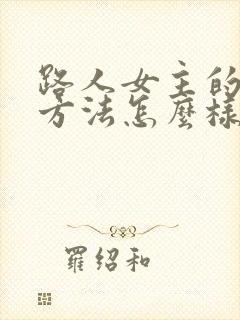 路人女主的
方法怎麼樣
羅紹和